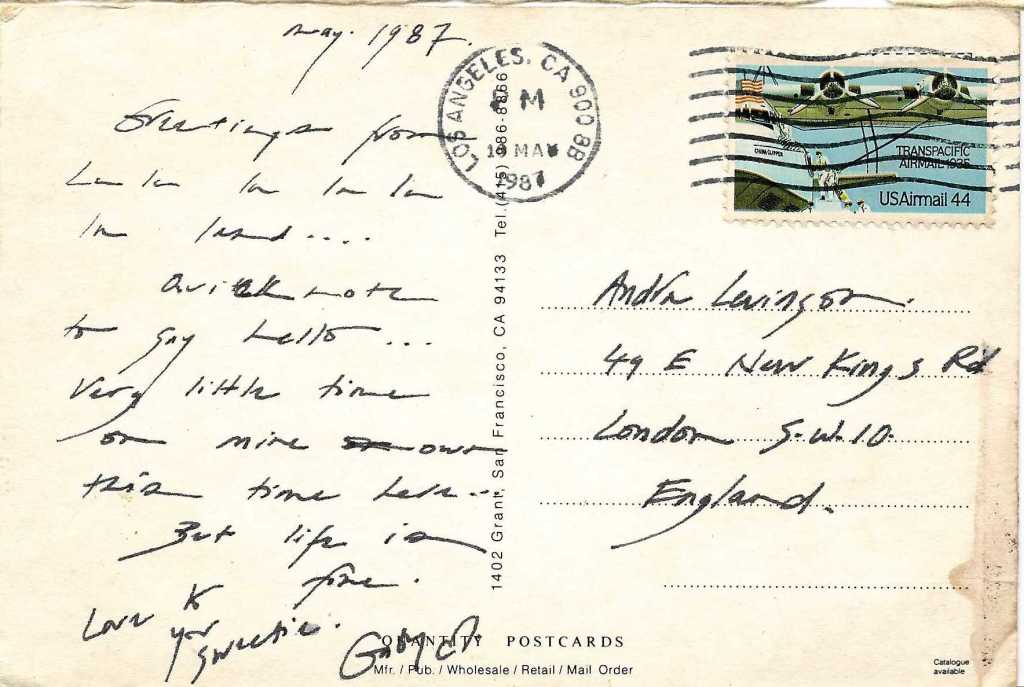 May. 1987.
Greetings from
La La la la la
la land....
Quick note
to say hello...
Very little time
on mine own
this time here...
But life is
fine.
Love to
you
sweetie.
LOS ANGELES, CA 900 88
PM
19 MAY
1987
CHINA CLIPPER
TRANSPACIFIC
AIRMAIL 1935
USAirmail 44
1402 Grant, San Francisco, CA 94133 Tel. (415) 986-8866
Andra Levingson.
49 E New Kings Rd
London S.W.10.
England.
QUANTITY POSTCARDS
Mfr. / Pub. / Wholesale / Retail / Mail Order
Catalogue
available